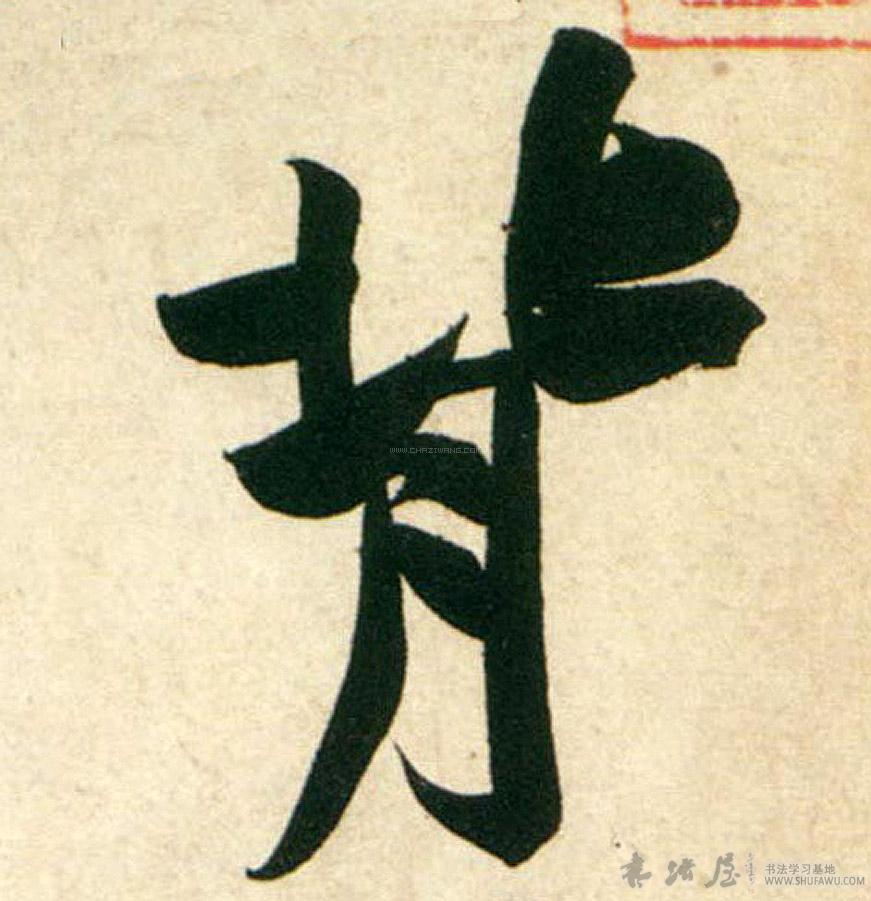 背
WWW.CHAZIWANG.COM
书法屋
书法学习基地
WWW.SHUFAWU.COM